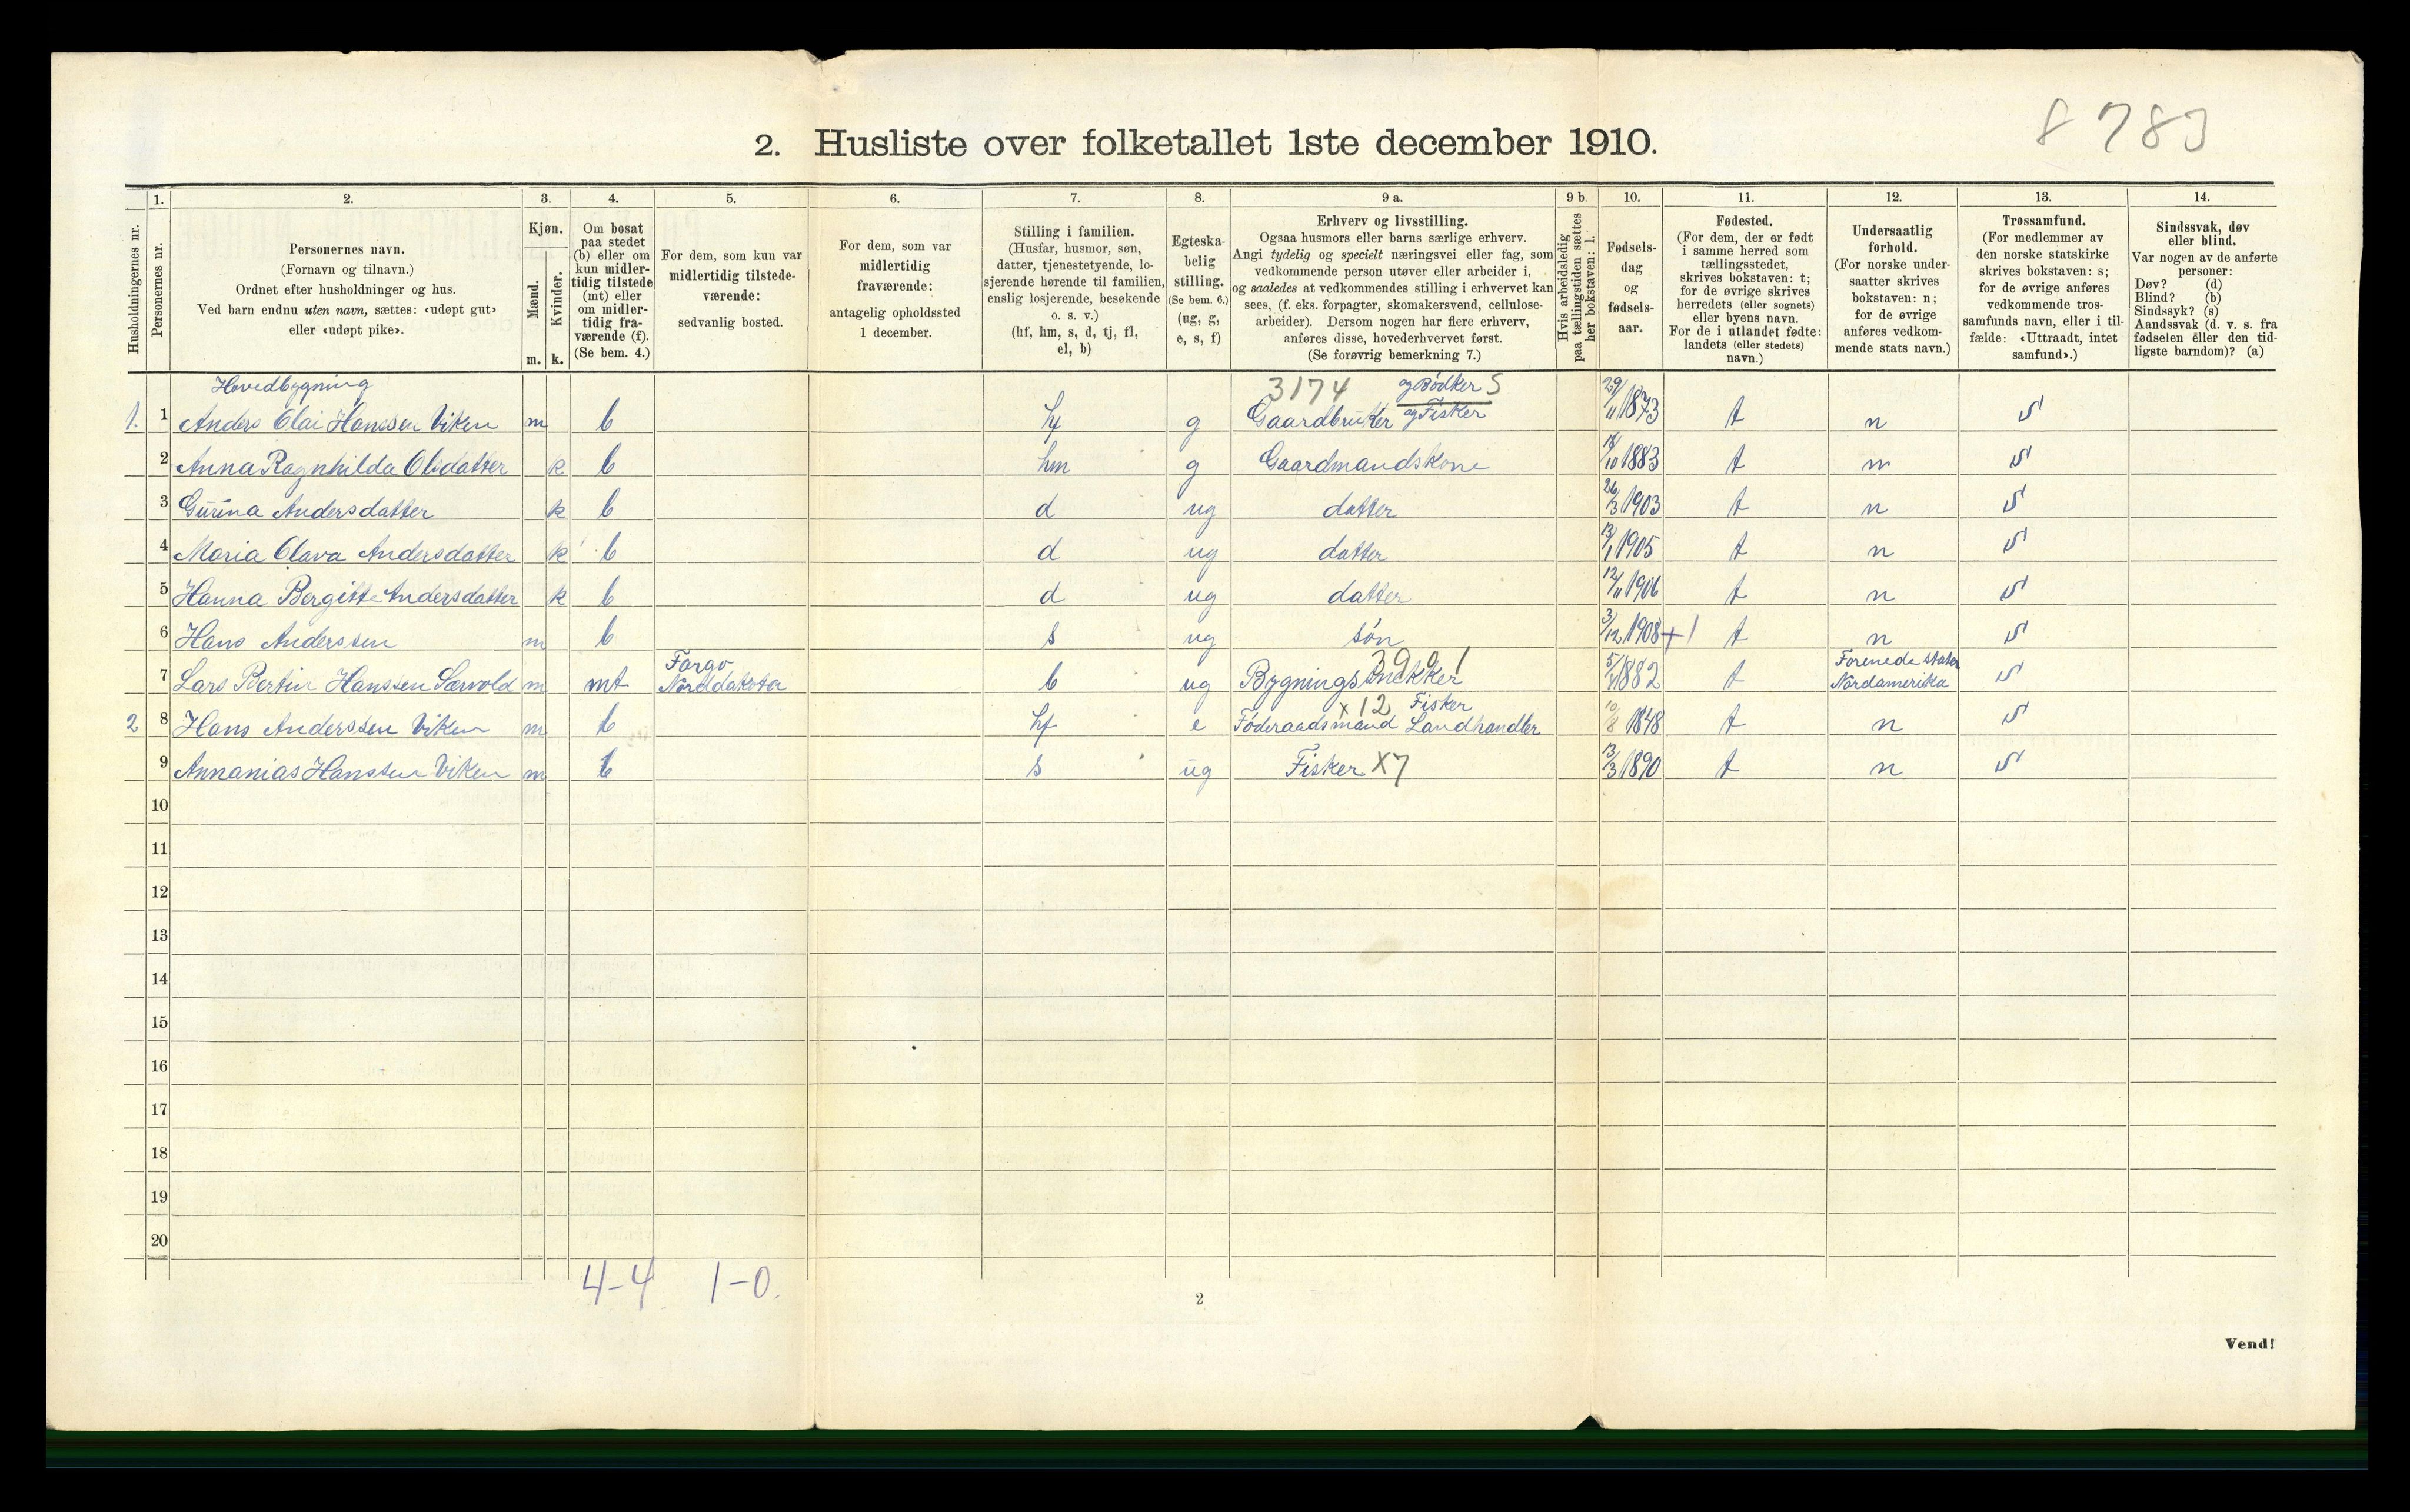 8783
2. Husliste over folketallet 1ste december 1910.
Husholdningernes nr.
1.
Personernes nr.
2.
Personernes navn.
(Fornavn og tilnavn.)
Ordnet efter husholdninger og hus.
Ved barn endnu uten navn, sættes: «udøpt gut»
eller «udøpt pike».
3.
Kjøn.
Mænd.
Kvinder.
m. k.
4.
Om bosat
paa stedet
(b) eller om
kun midler-
tidig tilstede
(mt) eller
om midler-
tidig fra-
værende (f).
(Se bem. 4.)
5.
For dem, som kun var
midlertidig tilstede-
værende:
sedvanlig bosted.
6.
For dem, som var
midlertidig
fraværende:
antagelig opholdssted
1 december.
7.
Stilling i familien.
(Husfar, husmor, søn,
datter, tjenestetyende, lo-
sjerende hørende til familien,
enslig losjerende, besøkende
o. s. v.)
(hf, hm, s, d, tj, fl,
el, b)
8.
Egteska-
belig
stilling.
(Se bem. 6.)
(ug, g,
e, s, f)
9 a.
Erhverv og livsstilling.
Ogsaa husmors eller barns særlige erhverv.
Angi tydelig og specielt næringsvei eller fag, som
vedkommende person utøver eller arbeider i,
og saaledes at vedkommendes stilling i erhvervet kan
sees, (f. eks. forpagter, skomakersvend, cellulose-
arbeider). Dersom nogen har flere erhverv,
anføres disse, hovederhvervet først.
(Se forøvrig bemerkning 7.)
9 b.
Hvis arbeidsledig
paa tællingstiden sættes
her bokstaven: l.
10.
Fødsels-
dag
og
fødsels-
aar.
11.
Fødested.
(For dem, der er født
i samme herred som
tællingsstedet,
skrives bokstaven: t;
for de øvrige skrives
herredets (eller sognets)
eller byens navn.
For de i utlandet fødte:
landets (eller stedets)
navn.)
12.
Undersaatlig
forhold.
(For norske under-
saatter skrives
bokstaven: n;
for de øvrige
anføres vedkom-
mende stats navn.)
13.
Trossamfund.
(For medlemmer av
den norske statskirke
skrives bokstaven: s;
for de øvrige anføres
vedkommende tros-
samfunds navn, eller i til-
fælde: «Uttraadt, intet
samfund».)
14.
Sindssvak, døv
eller blind.
Var nogen av de anførte
personer:
Døv? (d)
Blind? (b)
Sindssyk? (s)
Aandssvak (d. v. s. fra
fødselen eller den tid-
ligste barndom)? (a)
Hovedbygning 3174 og Bødker 5
1. 1 Anders Olai Hanssen Viken m b hf g Gaardbruker og Fisker 29/11 1873 t n s
2 Anna Ragnhilda Olsdatter k b hm g Gaardmandskone 18/10 1883 t n s
3 Gurina Andersdatter k b d ug datter 26/3 1903 t n s
4 Maria Olava Andersdatter k b d ug datter 13/1 1905 t n s
5 Hanna Bergitte Andersdatter k b d ug datter 12/11 1906 t n s
6 Hans Anderssen m b s ug søn 3/12 1908 +1 t n s
Fargo 3901 Forenede stater
7 Lars Bertin Hanssen Sævold m mt Norddakota b ug Bygningssnekker 1882 t Nordamerika s
x 12 Fisker
2 8 Hans Anderssen Viken m b hf e Føderaadsmand Landhandler 10/8 1848 t n s
9 Annanias Hanssen Viken m b s ug Fisker X7 13/3 1890 t n s
10
11
12
13
14
15
16
17
18
19
20
4-4 1-0.
2
Vend!